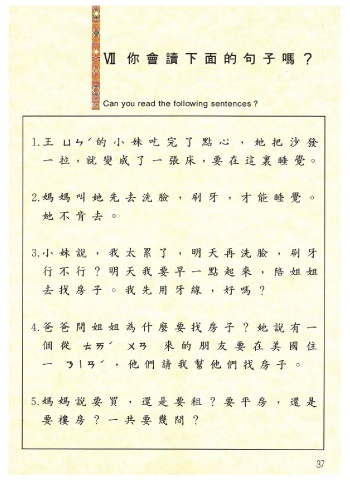 Ⅶ 你會讀下面的句子嗎？
Can you read the following sentences？
1.王ㄩㄣˊ的小妹吃完了點心，她把沙發
一拉，就變成了一張床，要在這裏睡覺。
2.媽媽叫她先去洗臉，刷牙，才能睡覺。
她不肯去。
3.小妹說，我太累了，明天再洗臉，刷牙
行不行？明天我要早一點起來，陪姐姐
去找房子。我先用牙線，好嗎？
4.爸爸問姐姐為什麼要找房子？她說有一
個從ㄊㄞˊ ㄨㄢ 來的朋友要在美國住
一ㄋㄧㄢˊ，他們請我幫他們找房子。
5.媽媽說要買，還是要租？要平房，還是
要樓房？一共要幾間？
37